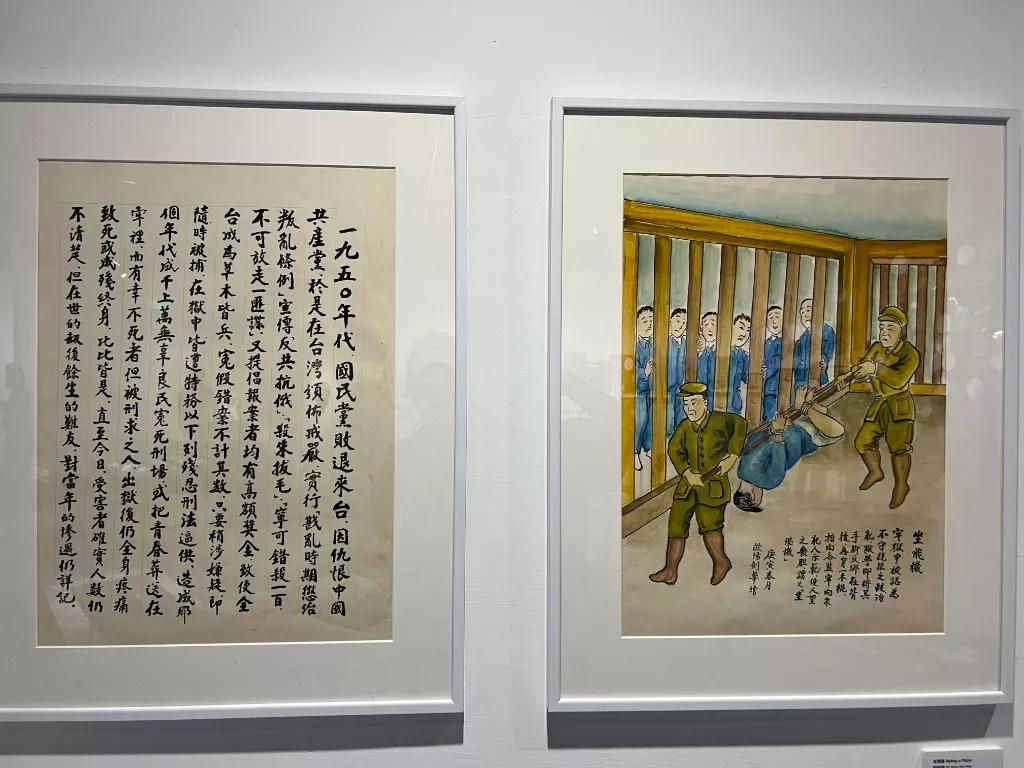 一九五〇年代，國民黨敗退來台，因仇恨中國
共產黨，於是在台灣頒佈戒嚴，實行「戡亂時期懲治
叛亂條例」宣傳「反共抗俄」、「殺朱拔毛」、寧可錯殺一百，
不可放走一匪諜，又提倡報案者均有高額獎金，致使全
台成為草木皆兵，冤假錯案不計其數，只要稍涉嫌疑即
隨時被捕，在獄中皆遭特務以下列殘忍刑法逼供，造成那
個年代成千上萬無辜良民冤死刑場，或把青春葬送在
牢裡，而有幸不死者，但被刑求之人，出獄後仍全身疼痛
致死或成殘終身，比比皆是，直至今日，受害者確實人數仍
不清楚，但在世的劫後餘生的難友，對當年的慘遇仍詳記，
坐飛機
牢獄中被認為
不守規矩之政治
犯獄警即將其
手腳反綁在背
後再穿一木棍
抬向各監牢向眾
犯人示範使人望
之喪膽謂之「坐
飛機」
庚寅春月
歐陽劍華繪
坐飛機 Riding a Plane